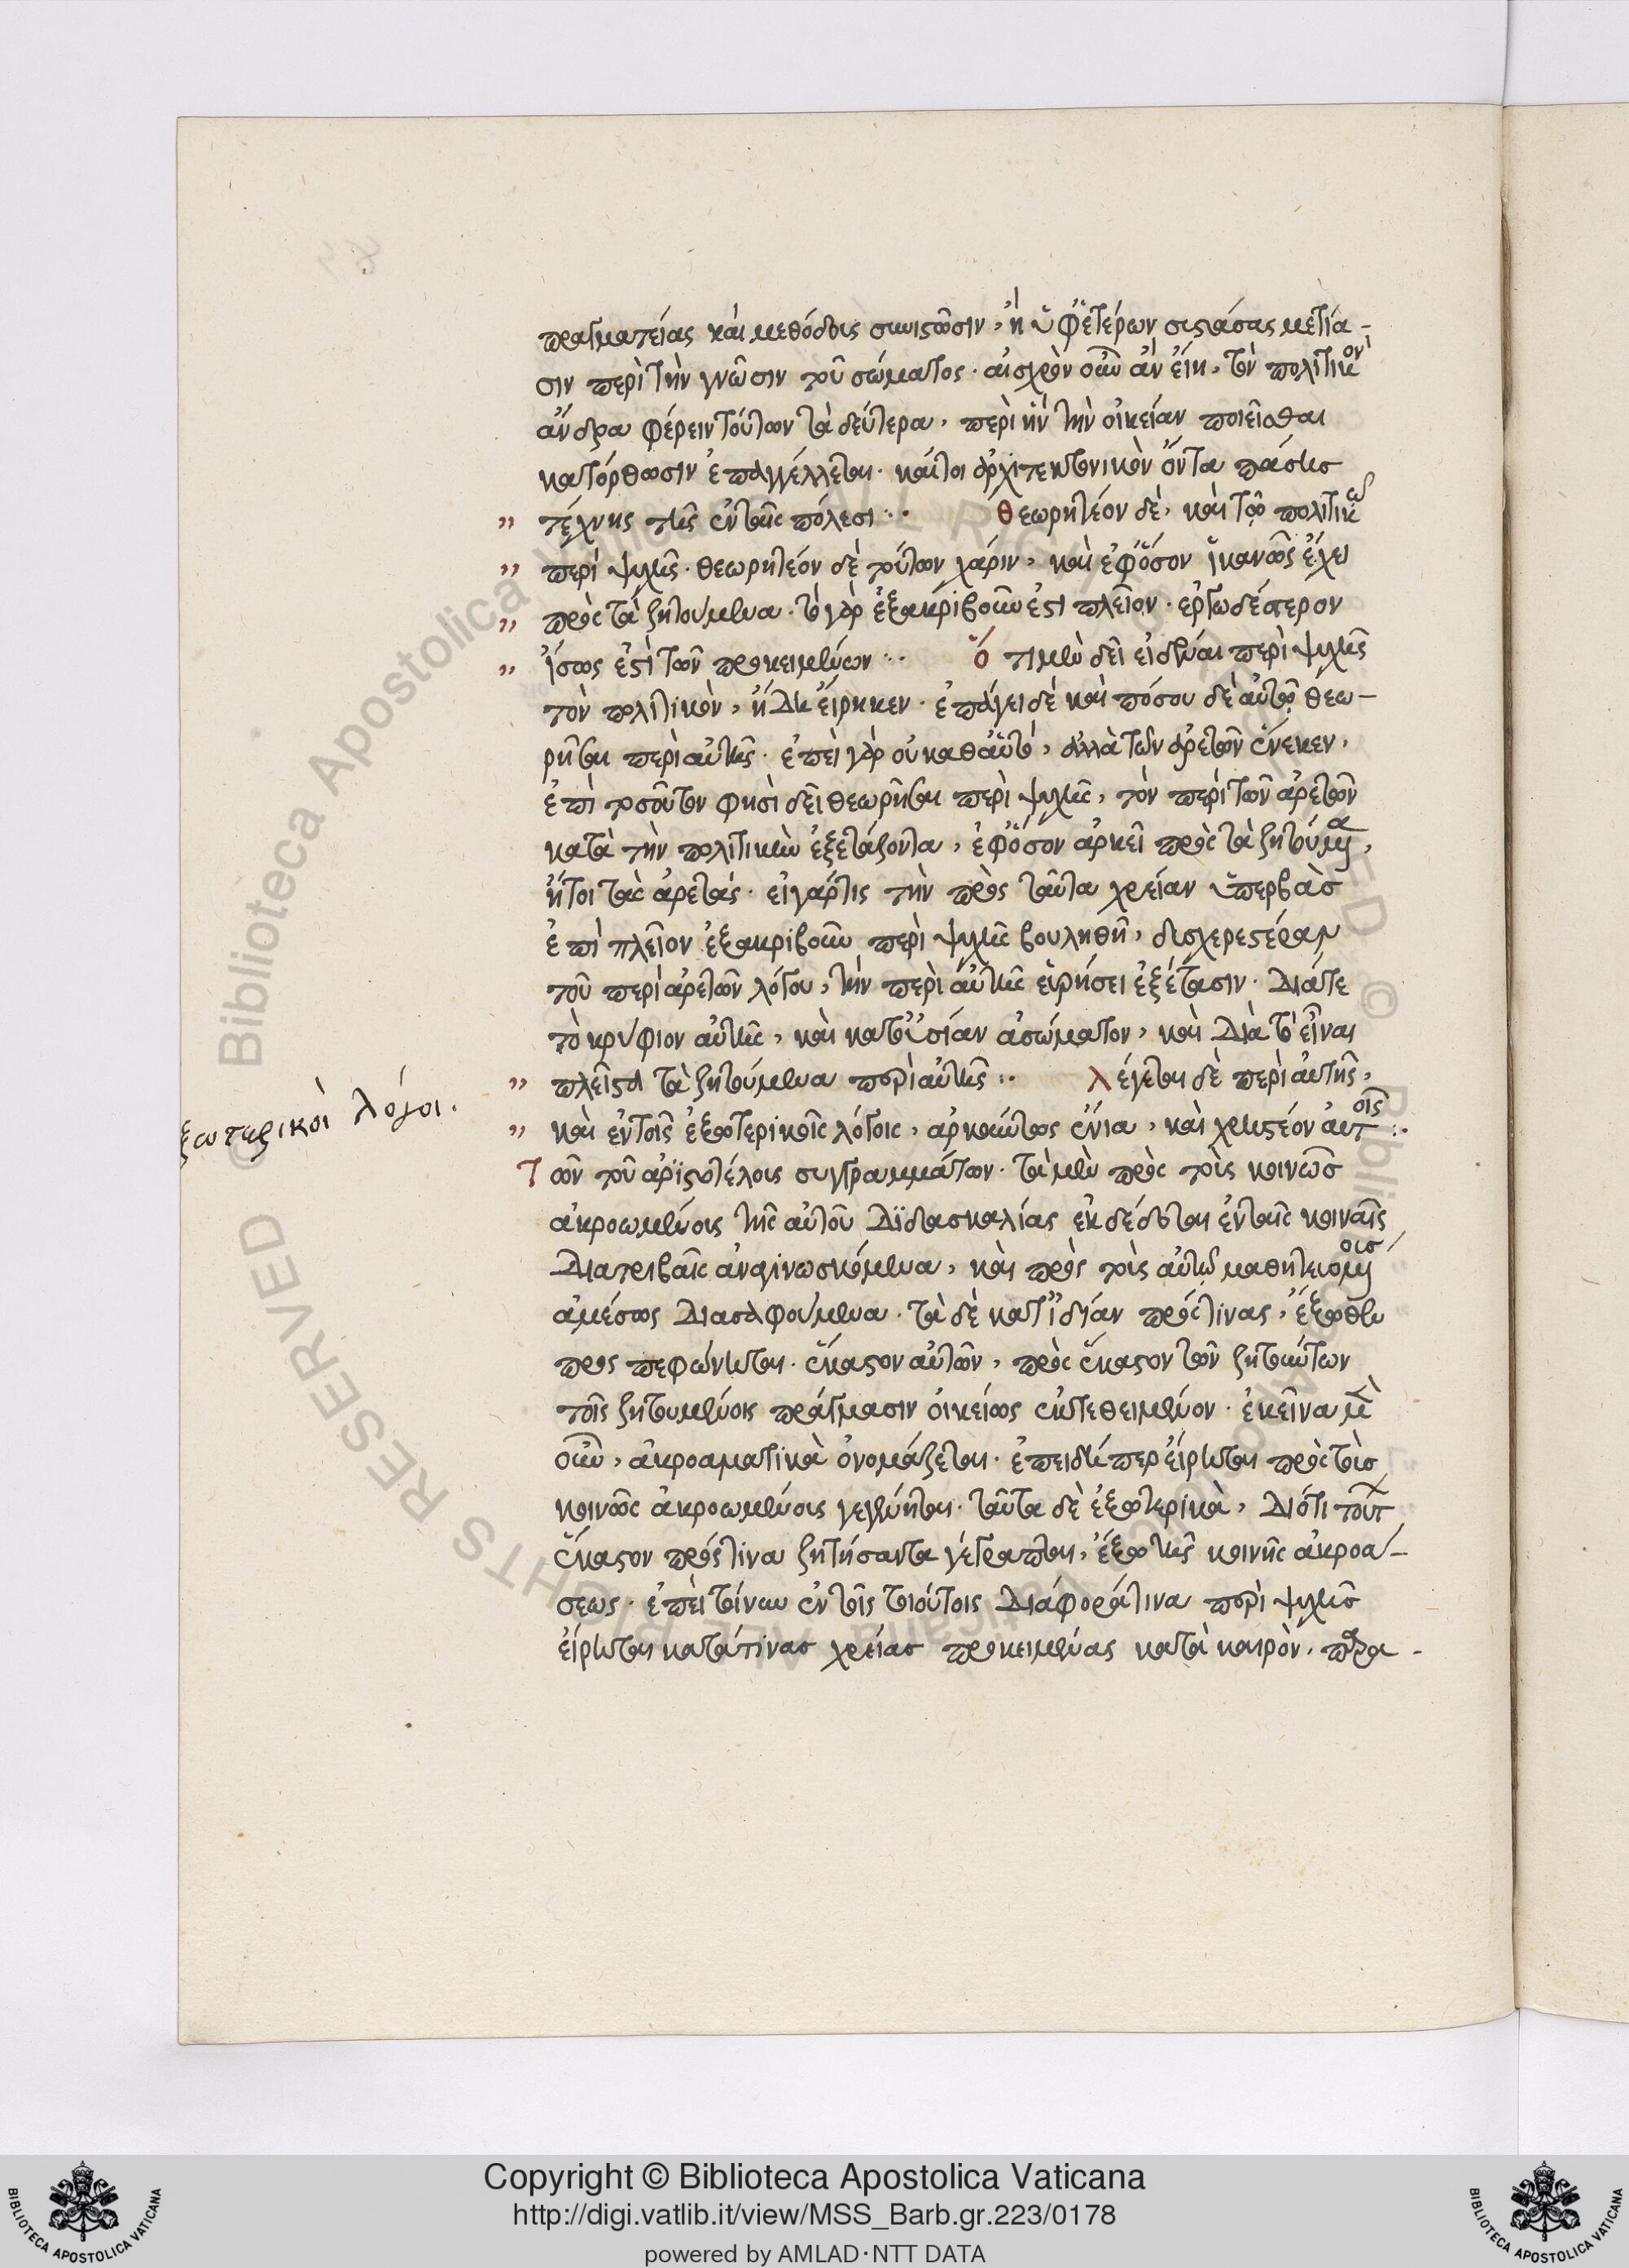 πραγματείας καὶ μεθόδους συνιστῶσιν, ἢ ὑφ' ἑτέρων συστάσας μετία-
σιν περὶ τὴν γνῶσιν τοῦ σώματος. αἰσχρὸν οὖν ἂν εἴη, τὸν πολιτικὸν
ἄνδρα φέρειν τούτων τὰ δεύτερα, περὶ ἣν τὴν οἰκείαν ποιεῖσθαι
κατόρθωσιν ἐπαγγέλλεται. καίτοι ἀρχιτεκτονικὸν ὄντα πάσης
τέχνης τῆς ἐν ταῖς πόλεσι :· Θεωρητέον δὲ, καὶ τῷ πολιτικῷ
περὶ ψυχῆς. θεωρητέον δὲ τούτων χάριν, καὶ ἐφ' ὅσον ἱκανῶς ἔχει
πρὸς τὰ ζητούμενα. τὸ γὰρ ἐξακριβοῦν ἐπὶ πλεῖον. ἐργωδέστερον
ἴσως ἐστὶ τῶν προκειμένων :· Ὅτι μὲν δεῖ εἰδέναι περὶ ψυχῆς
τὸν πολιτικὸν, ἤδη εἴρηκεν. ἐπάγει δὲ καὶ πόσου δὲ αὐτῷ θεω-
ρῆται περὶ αὐτῆς. ἐπεὶ γὰρ οὐ καθ' αὑτὸ, ἀλλὰ τῶν ἀρετῶν ἕνεκεν,
ἐπὶ τοσοῦτον φησὶ δεῖ θεωρῆται περὶ ψυχῆς, τὸν περὶ τῶν ἀρετῶν
κατὰ τὴν πολιτικὴν ἐξετάζοντα, ἐφ' ὅσον ἀρκεῖ πρὸς τὰ ζητούμενα,
ἤτοι τὰς ἀρετάς. εἰ γάρ τις τὴν πρὸς ταῦτα χρείαν ὑπερβὰς
ἐπὶ πλεῖον ἐξακριβοῦν περὶ ψυχῆς βουληθῇ, δυσχερεστέραν
τοῦ περὶ ἀρετῶν λόγου, τὴν περὶ αὐτῆς εὑρήσει ἐξέτασιν. διά τε
τὸ κρύφιον αὐτῆς, καὶ κατ' οὐσίαν ἀσώματον, καὶ διὰ τὸ εἶναι
πλεῖστα τὰ ζητούμενα περὶ αὐτῆς :· Λέγεται δὲ περὶ αὐτῆς,
ξωτερικοὶ λόγοι.
καὶ ἐν τοῖς ἐξωτερικοῖς λόγοις, ἀρκούντως ἔνια, καὶ χρηστέον αὐτοῖς :·
Τῶν τοῦ ἀριστοτέλους συγγραμμάτων. τὰ μὲν πρὸς τοὺς κοινῶς
ἀκροωμένους τῆς αὐτοῦ διδασκαλίας ἐκδέδοται ἐν ταῖς κοιναῖς
διατριβαῖς ἀναγινωσκόμενα, καὶ πρὸς τοὺς αὐτῷ μαθητευομένους
ἀμέσως διασαφούμενα. τὰ δὲ κατ' ἰδίαν πρός τινας, ἔξωθεν
προσπεφώνηται. ἕκαστον αὐτῶν, πρὸς ἕκαστον τῶν ζητούντων
τοῖς ζητουμένοις πράγμασιν οἰκείως ἐκτεθειμένον. ἐκεῖνα μὲν
οὖν, ἀκροαματικὰ ὀνομάζεται. ἐπειδήπερ εἴρηται πρὸς τοὺς
κοινῶς ἀκροωμένους γεγένηται. ταῦτα δὲ ἐξωτερικὰ, διότι τούτων
ἕκαστον πρός τινα ζητήσαντα γέγραπται, ἔξω τῆς κοινῆς ἀκροά-
σεως. ἐπεὶ τοίνυν ἐν τοῖς τοιούτοις διάφορά τινα περὶ ψυχῆς
εἴρηται κατά τινας χρείας προκειμένας κατὰ καιρὸν, παρα-
Copyright © Biblioteca Apostolica Vaticana
http://digi.vatlib.it/view/MSS_Barb.gr.223/0178
powered by AMLAD·NTT DATA